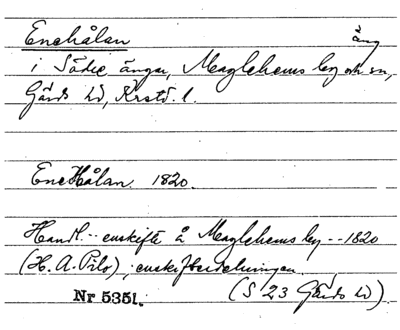 Enehålan äng
i Södre ängar, Maglehems by och sn,
Gärds hd, Krstd. l.
EneHålan. 1820.
Handl. -- enskifte å Maglehems by -- 1820
(H. A. Pilo); enskiftesdelningen.
Nr 5351. (S 23 Gärds hd)